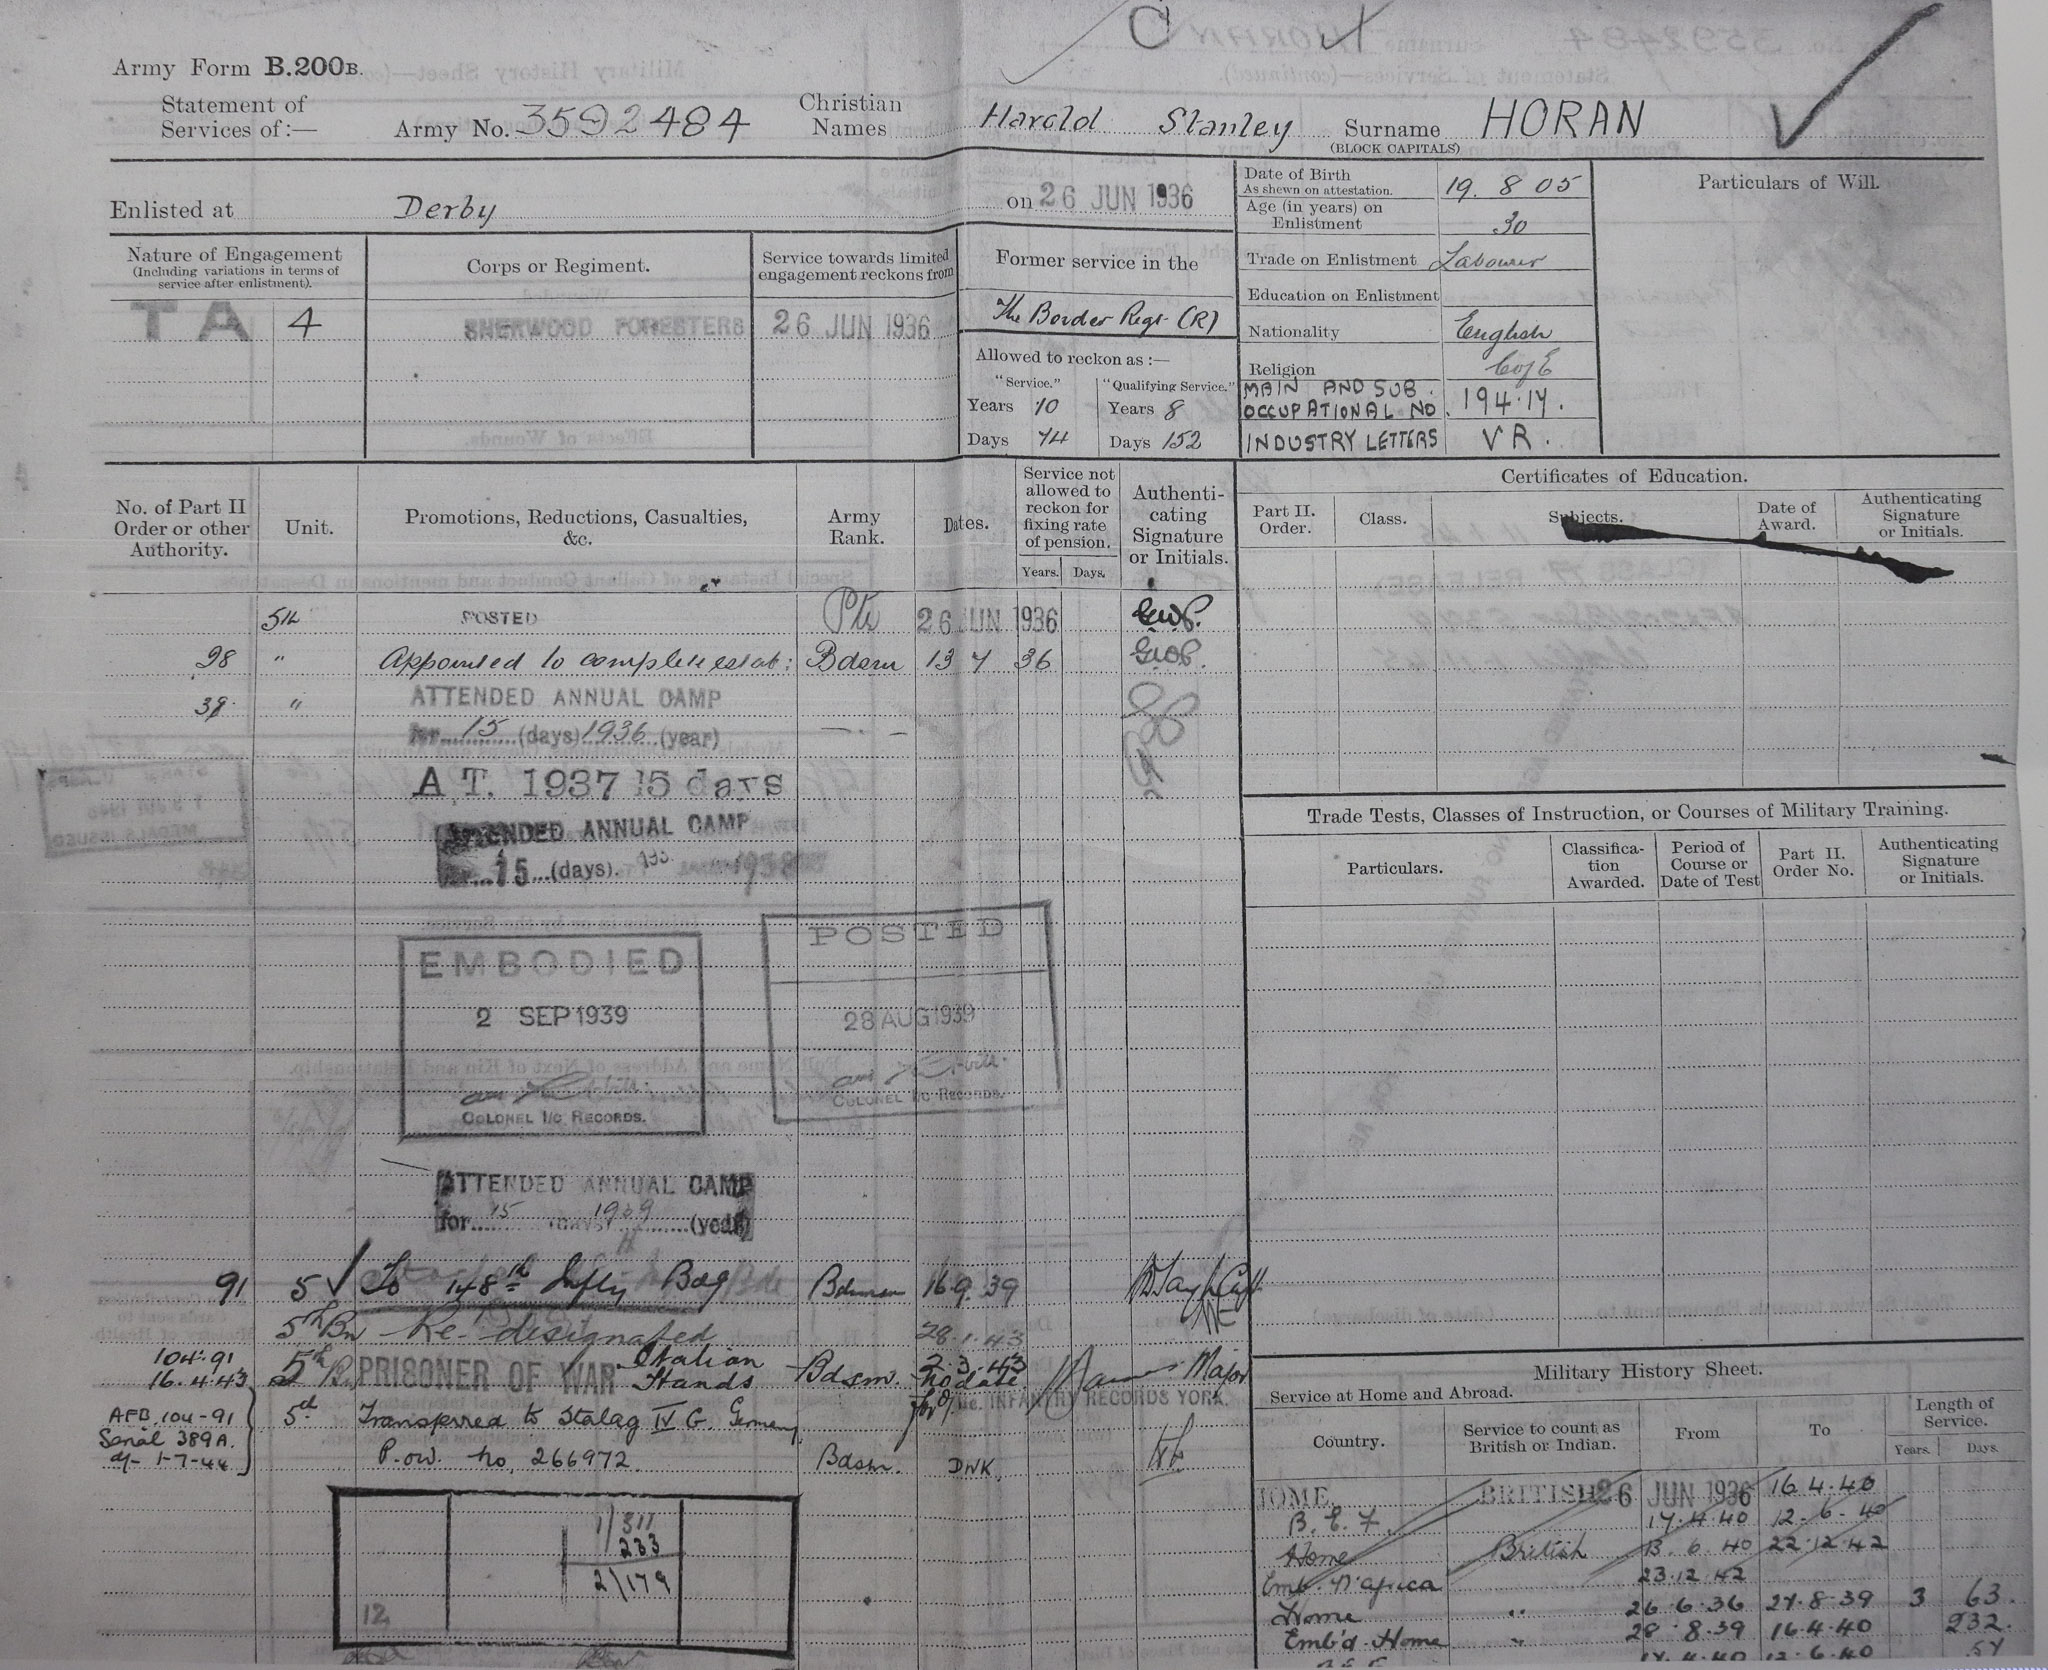 Army Form B.200B.
Statement of Services of:— Army No. 3592484 Christian Names Harold Stanley Surname HORAN
(BLOCK CAPITALS)
Enlisted at Derby on 26 JUN 1936
Date of Birth As shewn on attestation. 19.8.05
Age (in years) on Enlistment 30
Trade on Enlistment Labourer
Education on Enlistment
Nationality English
Religion C of E
MAIN AND SUB. OCCUPATIONAL NO. 194.14.
INDUSTRY LETTERS VR.
Particulars of Will.
Nature of Engagement
(Including variations in terms of service after enlistment).
TA 4
Corps or Regiment.
SHERWOOD FORESTERS
Service towards limited engagement reckons from
26 JUN 1936
Former service in the
The Border Regt (R)
Allowed to reckon as:—
"Service." "Qualifying Service."
Years 10 Years 8
Days 14 Days 152
No. of Part II Order or other Authority. Unit. Promotions, Reductions, Casualties, &c. Army Rank. Dates. Service not allowed to reckon for fixing rate of pension. Authenticating Signature or Initials.
Years. Days.
5th POSTED Pte 26 JUN 1936
98 " Appointed to complete estab: Bdsm 13 7 36
38 " ATTENDED ANNUAL CAMP
for 15 (days) 1936 (year)
A.T. 1937 15 days
ATTENDED ANNUAL CAMP
for 15 (days). 193 1938
EMBODIED
2 SEP 1939
COLONEL I/C RECORDS.
POSTED
28 AUG 1939
COLONEL I/C RECORDS.
ATTENDED ANNUAL CAMP
for 15 (days) 1939 (year)
91 5 To 148th Infty Bdg Bdsman 16.9.39
5th Bn Re-designated 28.1.43
104.91 16.4.43 5th Bn PRISONER OF WAR Italian Hands Bdsm. 2.3.43 no date Major
INFANTRY RECORDS YORK.
AFB.104-91 5th Transferred to Stalag IV G. Germany
Serial 389A.
d/- 1-7-44 P.O.W. no. 266972. Bdsm. DWK.
1/311
233
2/179
12
Certificates of Education.
Part II. Order. Class. Subjects. Date of Award. Authenticating Signature or Initials.
Trade Tests, Classes of Instruction, or Courses of Military Training.
Particulars. Classification Awarded. Period of Course or Date of Test Part II. Order No. Authenticating Signature or Initials.
Military History Sheet.
Service at Home and Abroad.
Country. Service to count as British or Indian. From To Length of Service.
Years. Days.
HOME BRITISH 26 JUN 1936 16.4.40
B.E.F. 17.4.40 12.6.40
Home British 13.6.40 22.12.42
Emb. N. Africa 23.12.42
Home " 26.6.36 27.8.39 3 63.
Emb'd. Home " 28.8.39 16.4.40 232.
B.E.F. 17.4.40 12.6.40 57